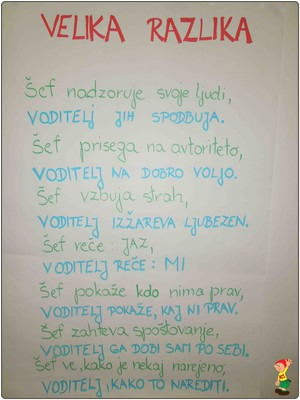 VELIKA RAZLIKA
Šef nadzoruje svoje ljudi,
VODITELJ JIH SPODBUJA.
Šef prisega na avtoriteto,
VODITELJ NA DOBRO VOLJO.
Šef vzbuja strah,
VODITELJ IZŽAREVA LJUBEZEN.
Šef reče: JAZ,
VODITELJ REČE: MI
Šef pokaže kdo nima prav,
VODITELJ POKAŽE, KAJ NI PRAV.
Šef zahteva spoštovanje,
VODITELJ GA DOBI SAM PO SEBI.
Šef ve, kako je nekaj narejeno,
VODITELJ, KAKO TO NAREDITI.